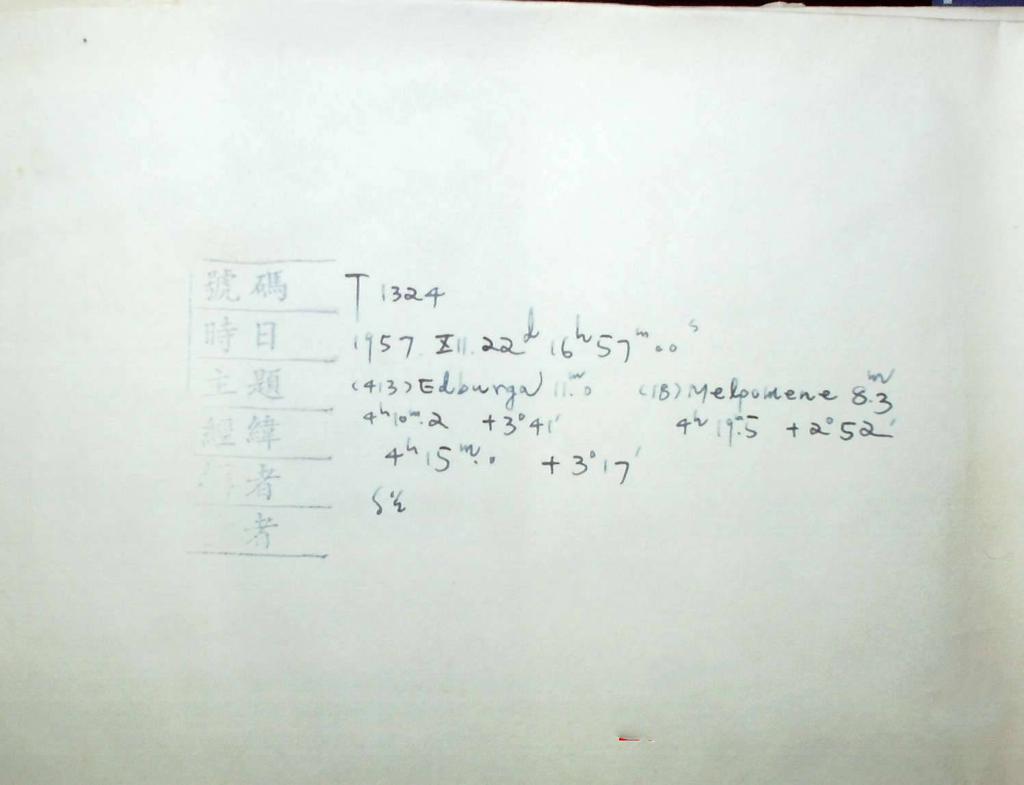 號碼 T 1324
時日 1957 XII. 22ᵈ 16ʰ 57ᵐ 00ˢ
主題 (413) Edburga 11ᵐ.0 (18) Melpomene 8ᵐ.3
經緯 4ʰ 10ᵐ.2 +3° 41′ 4ʰ 19ᵐ.5 +2° 52′
4ʰ 15ᵐ.0 +3° 17′
者
者